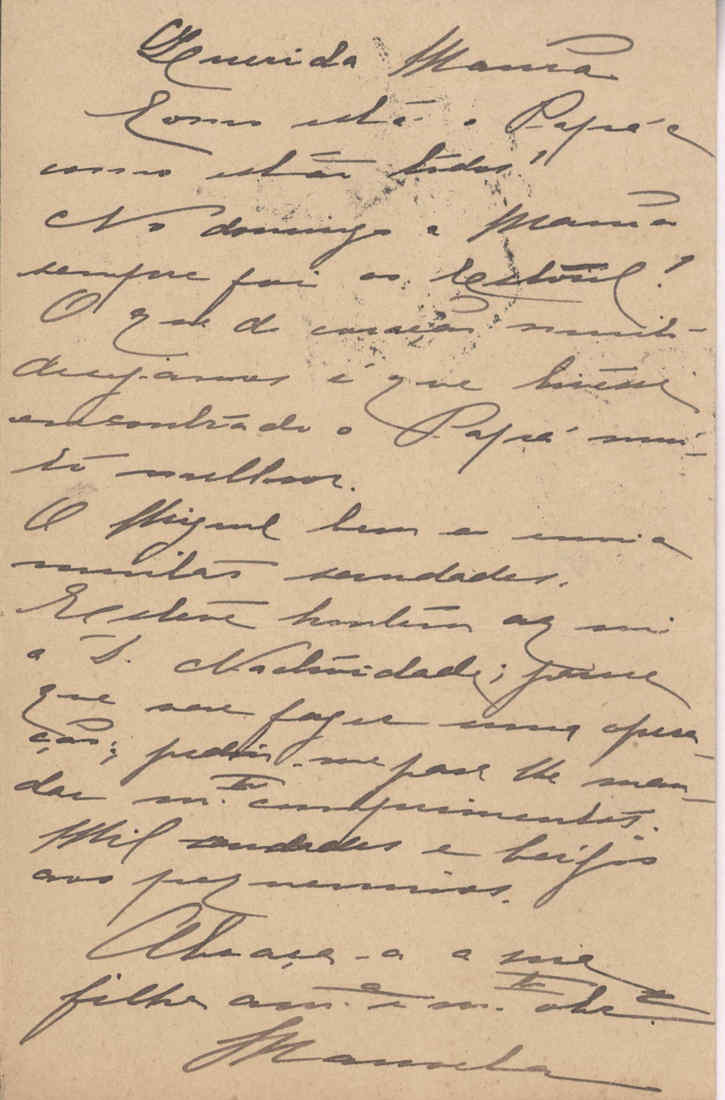 Querida Mamã
Como está o Papá e
como estão todos?
No domingo a Mamã
sempre foi ao Estoril?
O que de coração muito
desejamos é que tivesse
encontrado o Papá mui-
to melhor.
O Miguel bem e envia
muitas saudades.
Esteve hontem aqui
a D. Nactividade; parece
que vae fazer uma opera-
ção; pediu-me para lhe man-
dar m.tos cumprimentos.
Mil saudades e beijos
aos pequeninos.
Abraça-a a sua
filha am.ª e m.to obg.
Manuela